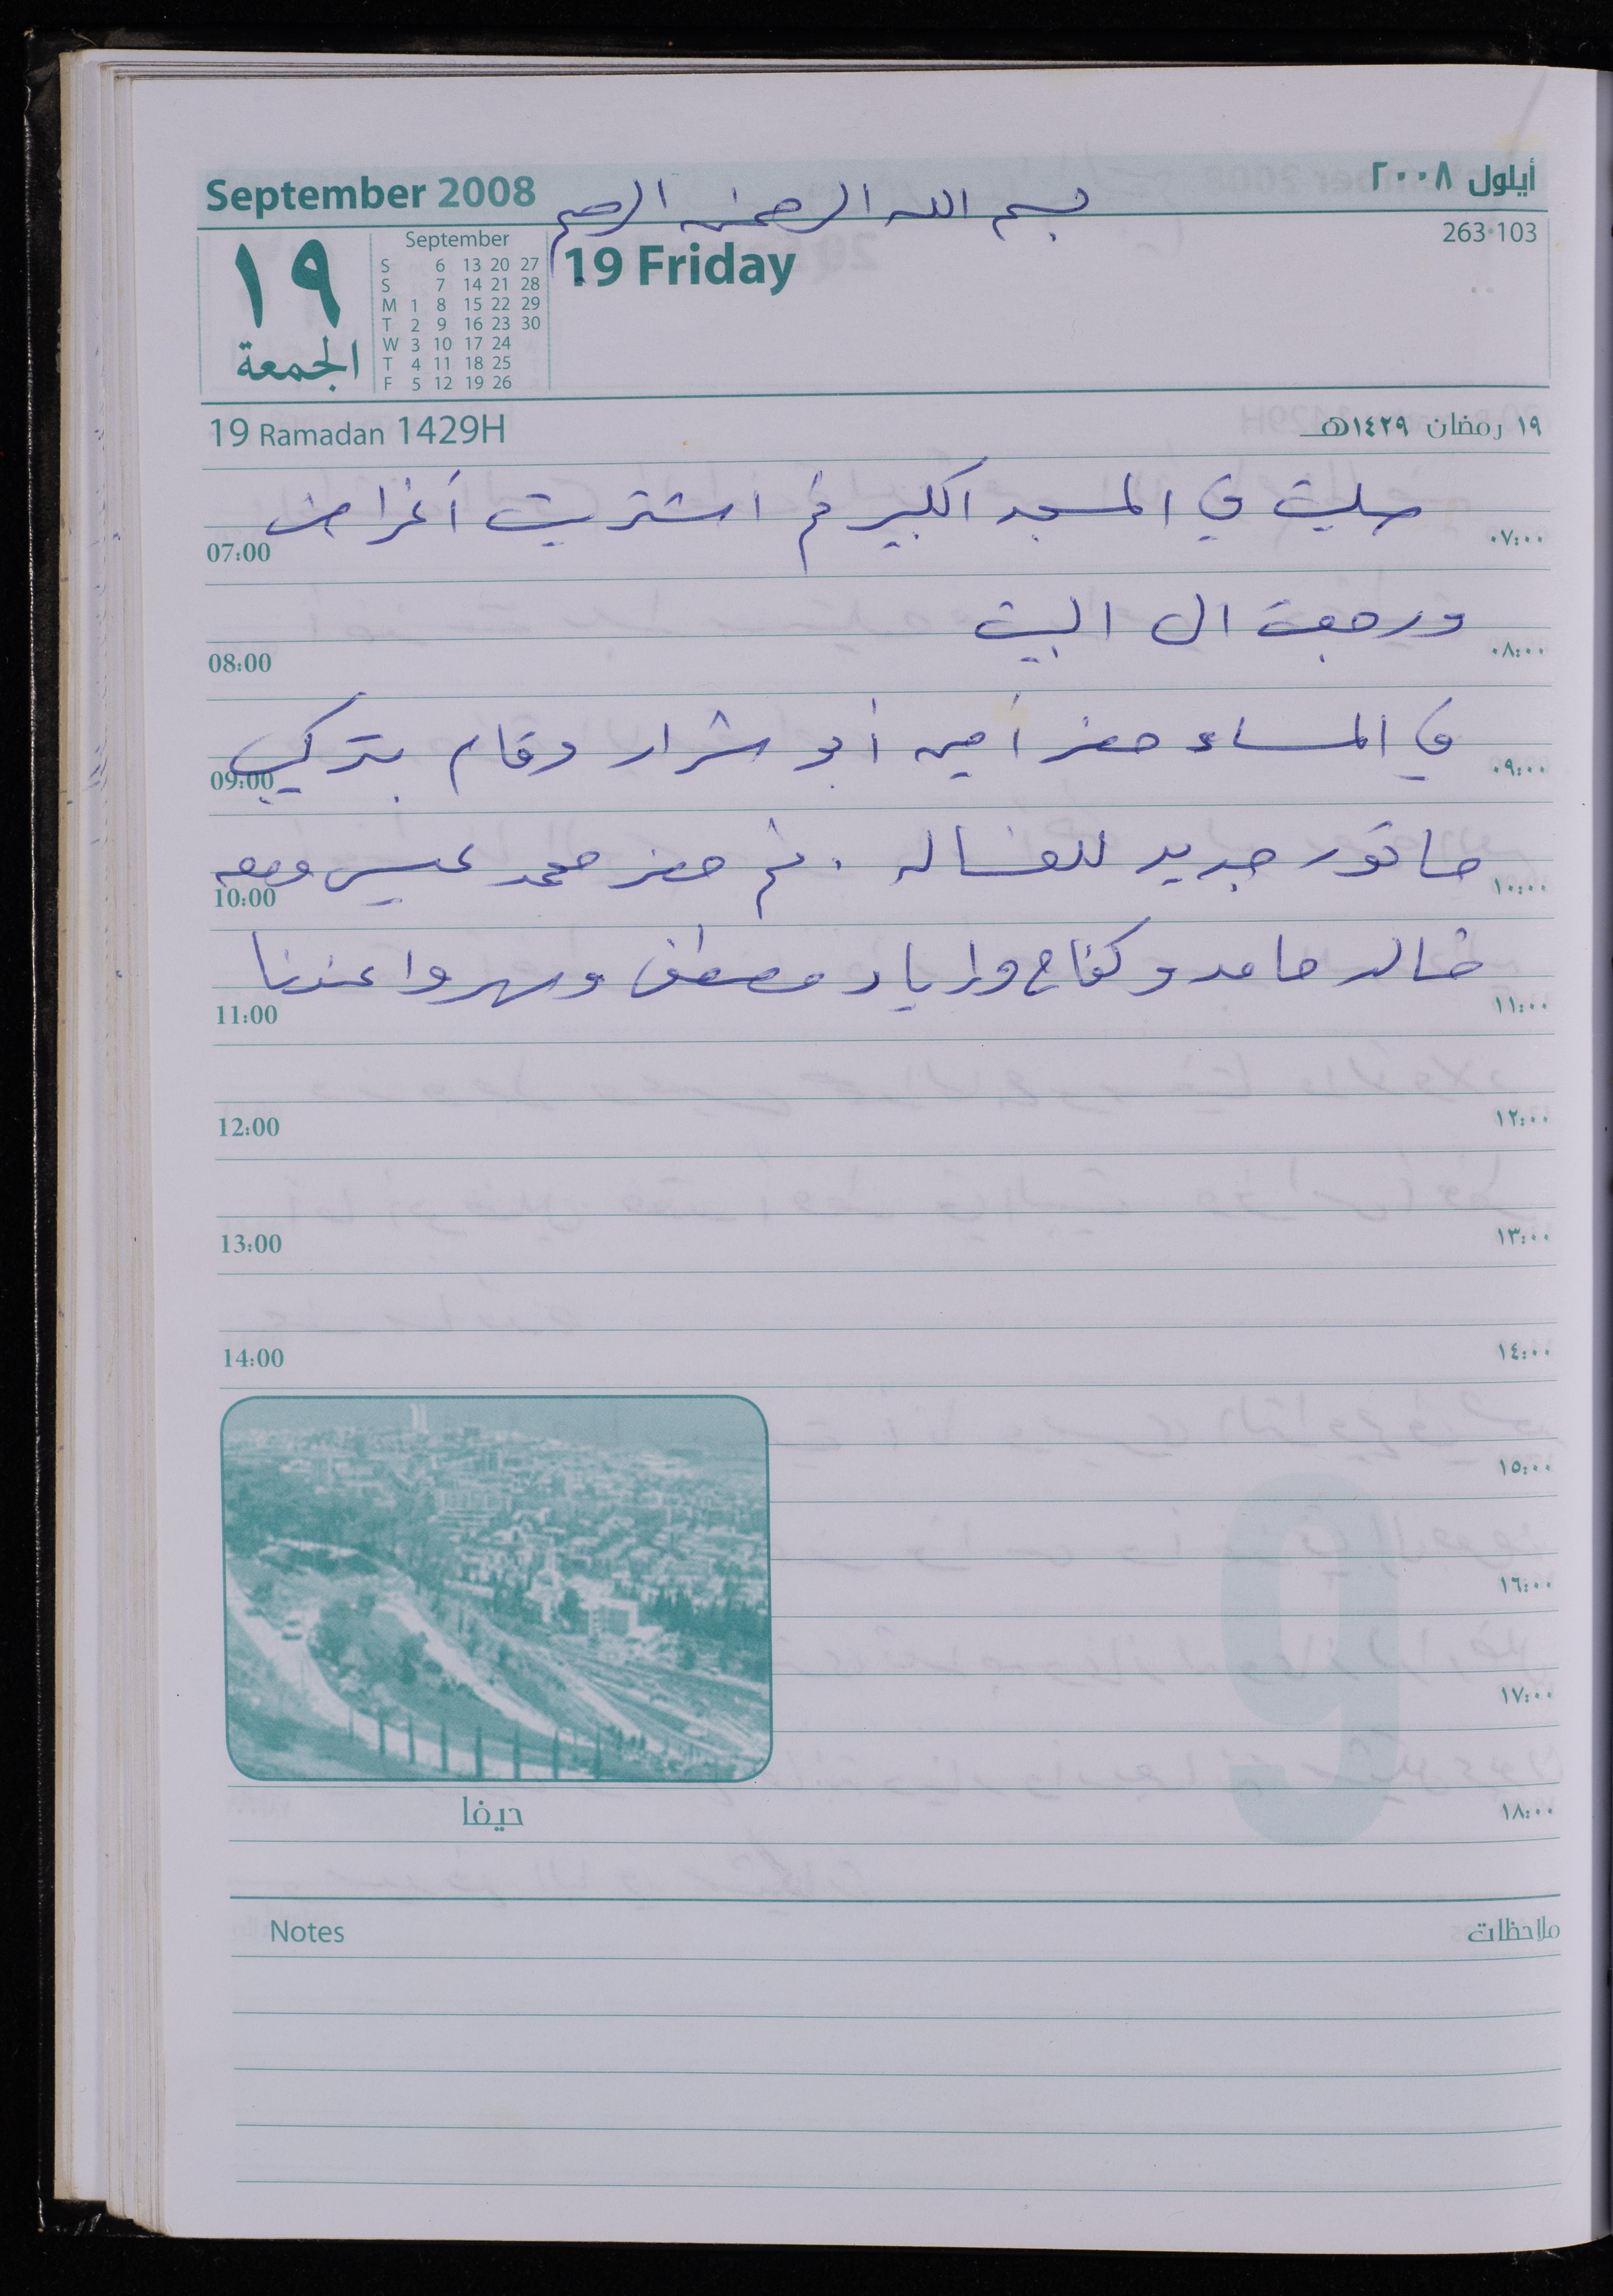 September 2008
أيلول ٢٠٠٨
بسم الله الرحمن الرحيم
١٩
الجمعة
September
S 6 13 20 27
S 7 14 21 28
M 1 8 15 22 29
T 2 9 16 23 30
W 3 10 17 24
T 4 11 18 25
F 5 12 19 26
19 Friday
263·103
19 Ramadan 1429H
١٩ رمضان ١٤٢٩هـ
صليت في المسجد الكبير ثم اشتريت أغراض
07:00 ٠٧:٠٠
ورجعت الى البيت
08:00 ٠٨:٠٠
في المساء حضر أمين أبو شرار وقام بتركيب
09:00 ٠٩:٠٠
ماتور جديد للغسالة . ثم حضر محمد عيسى ومعه
10:00 ١٠:٠٠
خالد حامد وكفاح واياد مصطفى وسهروا عندنا
11:00 ١١:٠٠
12:00 ١٢:٠٠
13:00 ١٣:٠٠
14:00 ١٤:٠٠
١٥:٠٠
١٦:٠٠
١٧:٠٠
١٨:٠٠
حيفا
9
Notes
ملاحظات